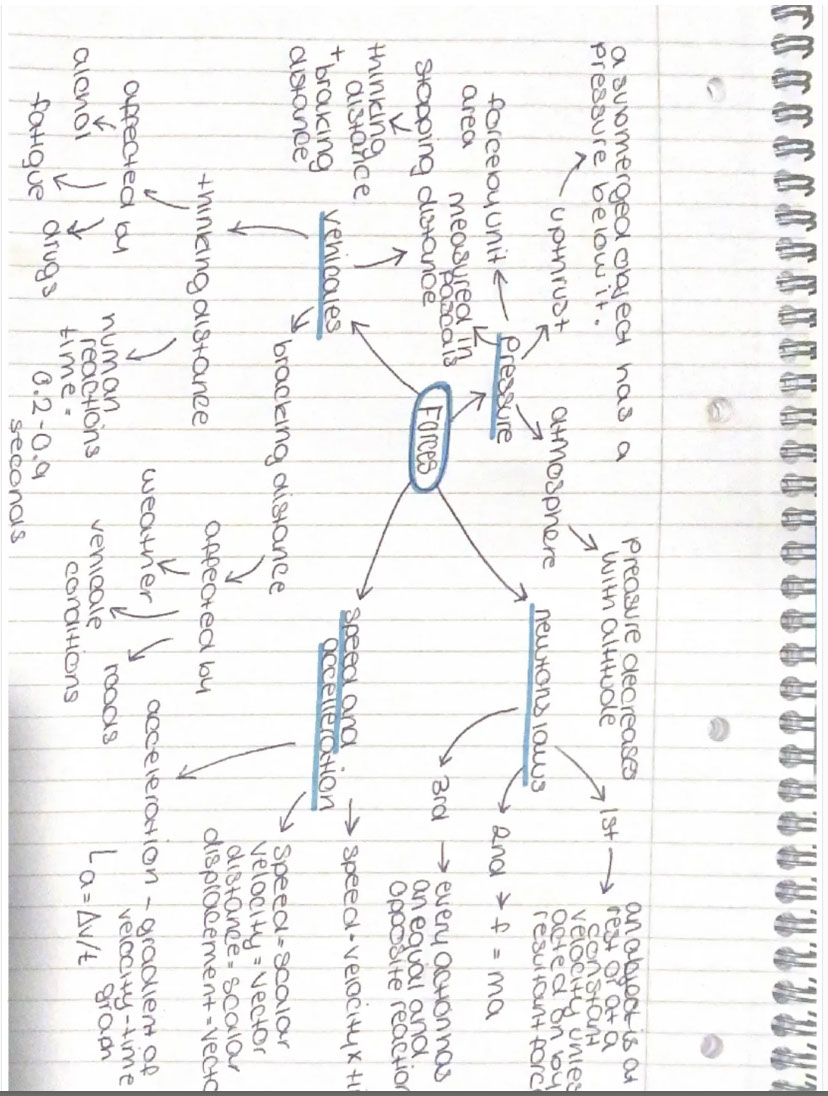 Forces
pressure
uptnrust
a submerged object has a
pressure below it.
atmosphere
preasure decreases
with altitude
force by unit
area
measured in
pascals
vehicales
stopping distance
thinking
distance
+ braking
distance
thinking distance
affected by
alcnol
fatigue
drugs
human
reactions
time =
0.2-0.9
seconds
bracking distance
affected by
weather
vehicale
conditions
roads
newtons laws
1st
an object is at
rest or at a
constant
velocity unles
acted on by
resultant forc
2nd
f = ma
3rd
every action has
an equal and
opposite reaction
speed and
accelleration
speed = velocity x ti
speed = scalar
velocity = vector
distance = scalar
displacement = vecto
acceleration - gradient of
velocity-time
graph
L a = Δv/t